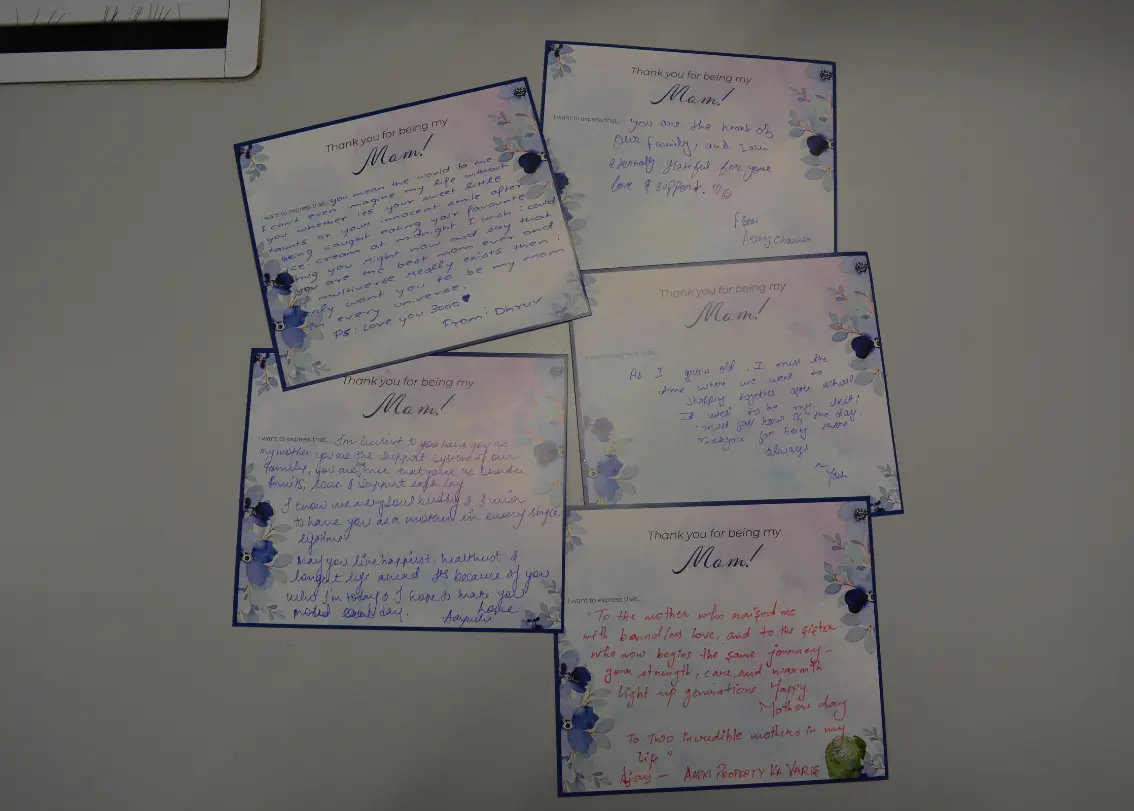 Thank you for being my
Mom!
I want to express that... you mean the world to me
I can't even imagine my life without
you whether its your sweet little
taunts or your innocent smile after
being caught eating your favourite
ice-cream at midnight I wish i could
hug you right now and say that
you are the best mom ever and
multiverse really exists then i
only want you to be my mom
in every universe.
PS: Love you 3000
From: Dhruv
Thank you for being my
Mom!
I want to express that... you are the heart of
our family, and I am
eternally grateful for your
love & support.
From
Chauhan
Thank you for being my
Mom!
I want to express that...
As I grow old, I miss the
time where we went to
shopping together after school
It used to be my best/
most fav hour of the day.
Thankyou for being there
always
~Yash
Thank you for being my
Mom!
I want to express that... I'm luckiest to have you as
my mother you are the support system of our
family, you are tree that gives us
fruits, love & support each day
I know we are soul & I wish
to have you as a mother in every single
lifetime
May you live happiest, healthiest &
longest life ahead Its because of you
who I'm today & I hope to make you
proud day.
Thank you for being my
Mom!
I want to express that...
"To the mother who raised me
with boundless love, and to the sister
who now begins the same journey—
your strength, care, and warmth
light up generations Happy
Mothers day
To Two incredible mothers in my
Life"
Ajay — AAPKI PROPERTY KA VARIS